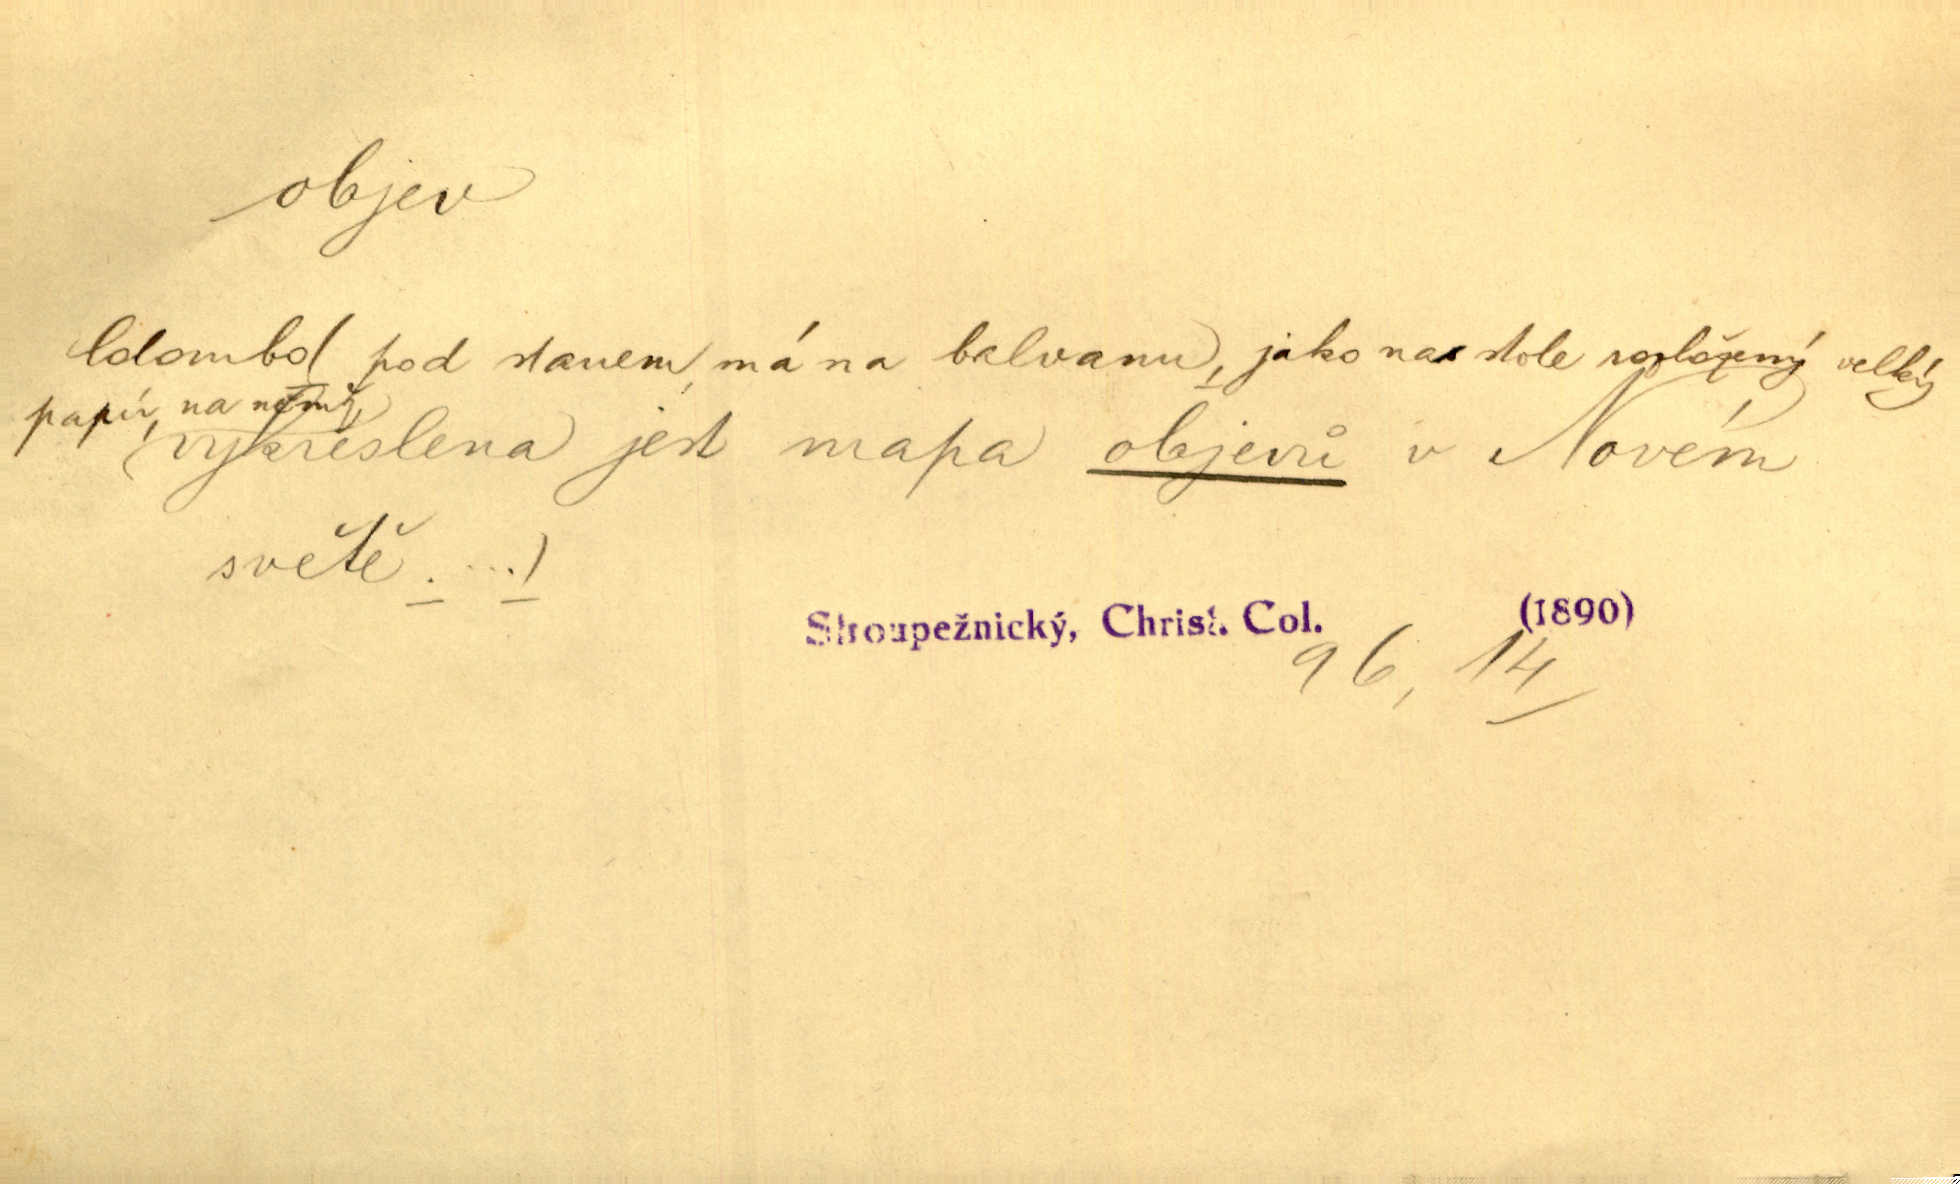 objev
Colombo( pod stanem, má na balvanu, jako na stole rozložený velký
papír, na němž
vykreslena jest mapa objevů v Novém
světě . ...)
Stroupežnický, Christ. Col. (1890)
96, 14